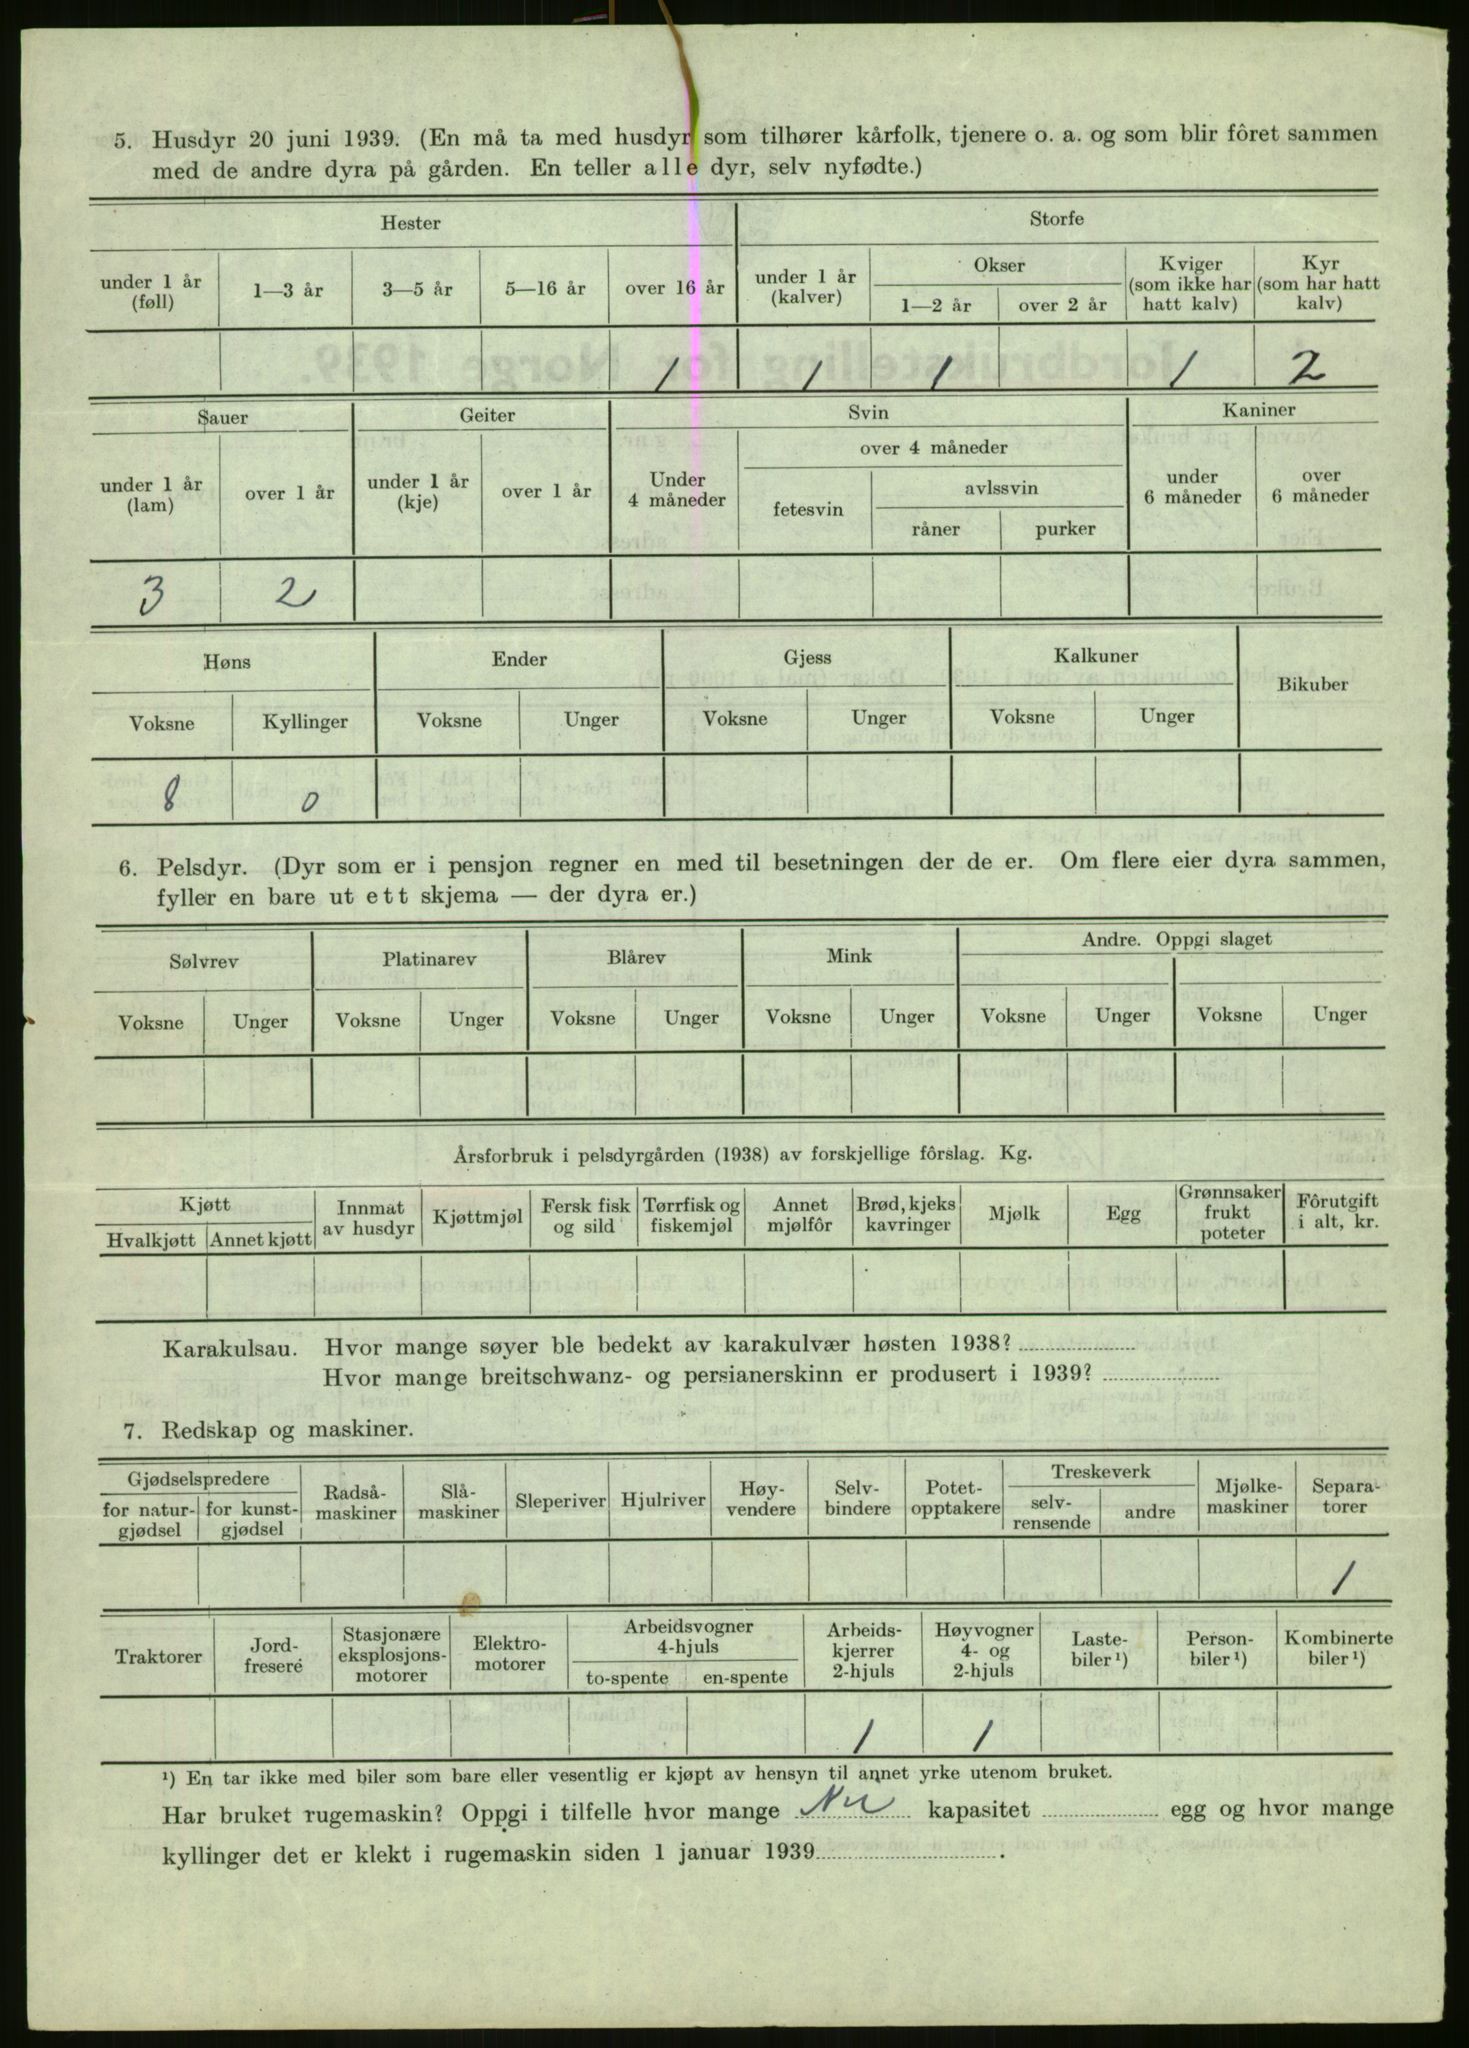 5. Husdyr 20 juni 1939. (En må ta med husdyr som tilhører kårfolk, tjenere o. a. og som blir fôret sammen
med de andre dyra på gården. En teller alle dyr, selv nyfødte.)
Hester Storfe
under 1 år (føll) 1—3 år 3—5 år 5—16 år over 16 år under 1 år (kalver) Okser 1—2 år over 2 år Kviger (som ikke har hatt kalv) Kyr (som har hatt kalv)
1 1 1 1 2
Sauer Geiter Svin Kaniner
under 1 år (lam) over 1 år under 1 år (kje) over 1 år Under 4 måneder over 4 måneder fetesvin avlssvin råner purker under 6 måneder over 6 måneder
3 2
Høns Ender Gjess Kalkuner Bikuber
Voksne Kyllinger Voksne Unger Voksne Unger Voksne Unger
8 0
6. Pelsdyr. (Dyr som er i pensjon regner en med til besetningen der de er. Om flere eier dyra sammen,
fyller en bare ut ett skjema — der dyra er.)
Sølvrev Platinarev Blårev Mink Andre. Oppgi slaget
Voksne Unger Voksne Unger Voksne Unger Voksne Unger Voksne Unger Voksne Unger
Årsforbruk i pelsdyrgården (1938) av forskjellige fôrslag. Kg.
Kjøtt Hvalkjøtt Annet kjøtt Innmat av husdyr Kjøttmjøl Fersk fisk og sild Tørrfisk og fiskemjøl Annet mjølfôr Brød, kjeks kavringer Mjølk Egg Grønnsaker frukt poteter Fôrutgift i alt, kr.
Karakulsau. Hvor mange søyer ble bedekt av karakulvær høsten 1938?
Hvor mange breitschwanz- og persianerskinn er produsert i 1939?
7. Redskap og maskiner.
Gjødselspredere for natur- gjødsel for kunst- gjødsel Radså- maskiner Slå- maskiner Sleperiver Hjulriver Høy- vendere Selv- bindere Potet- opptakere Treskeverk selv- rensende andre Mjølke- maskiner Separa- torer
1
Traktorer Jord- fresere Stasjonære eksplosjons- motorer Elektro- motorer Arbeidsvogner 4-hjuls to-spente en-spente Arbeids- kjerrer 2-hjuls Høyvogner 4- og 2-hjuls Laste- biler¹) Person- biler¹) Kombinerte biler¹)
1 1
¹) En tar ikke med biler som bare eller vesentlig er kjøpt av hensyn til annet yrke utenom bruket.
Har bruket rugemaskin? Oppgi i tilfelle hvor mange Nei kapasitet egg og hvor mange
kyllinger det er klekt i rugemaskin siden 1 januar 1939.